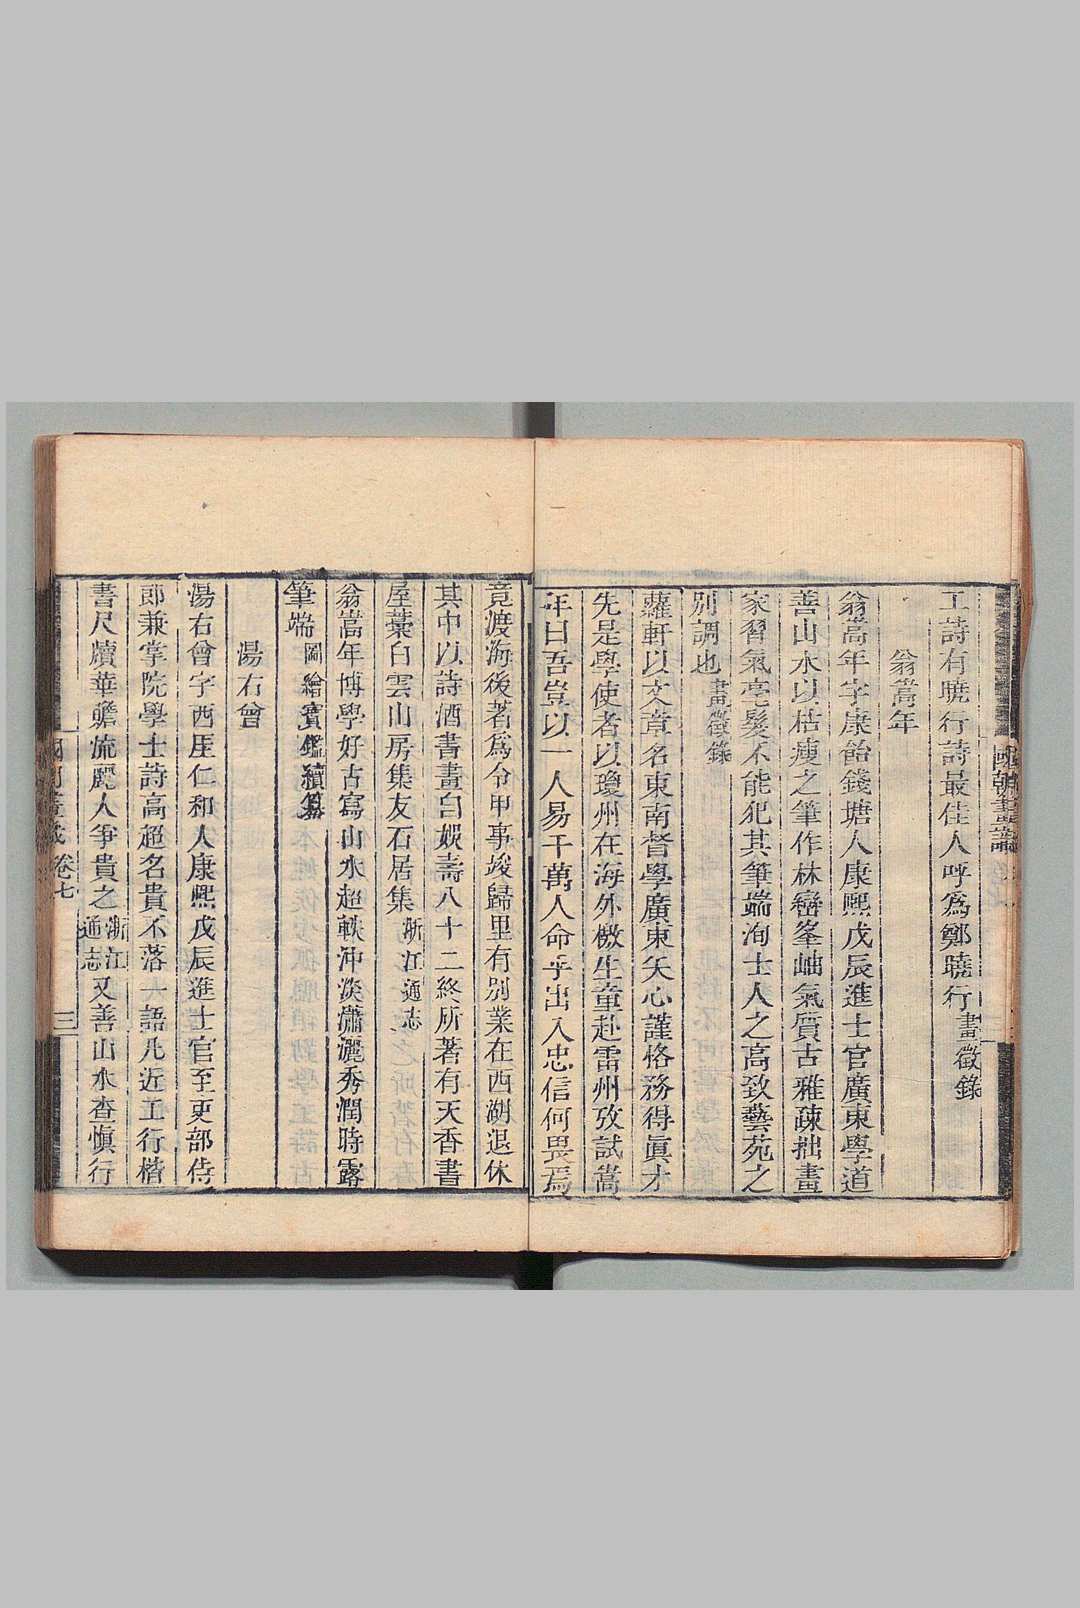 工詩有曉行詩最佳人呼爲鄭曉行畫徵錄
翁嵩年
翁嵩年字康飴錢塘人康熙戊辰進士官廣東學道
善山水以枯瘦之筆作林巒峯岫氣質古雅疎拙畫
家習氣毫髮不能犯其筆端洵士人之高致藝苑之
別調也畫徵錄
蘿軒以文章名東南督學廣東矢心謹恪務得眞才
先是學使者以瓊州在海外檄生童赴雷州攷試嵩
年曰吾豈以一人易千萬人命乎出入忠信何畏焉
竟渡海後著爲令甲事竣歸里有別業在西湖退休
其中以詩酒書畫自娛壽八十二終所著有天香書
屋藁白雲山房集友石居集浙江通志
翁嵩年博學好古寫山水超軼沖淡瀟灑秀潤時露
筆端圖繪寶鑑續纂
湯右曾
湯右曾字西厓仁和人康熙戊辰進士官至吏部侍
郎兼掌院學士詩高超名貴不落一語凡近工行楷
書尺牘華贍流麗人爭貴之浙江通志又善山水查愼行
卷七
三